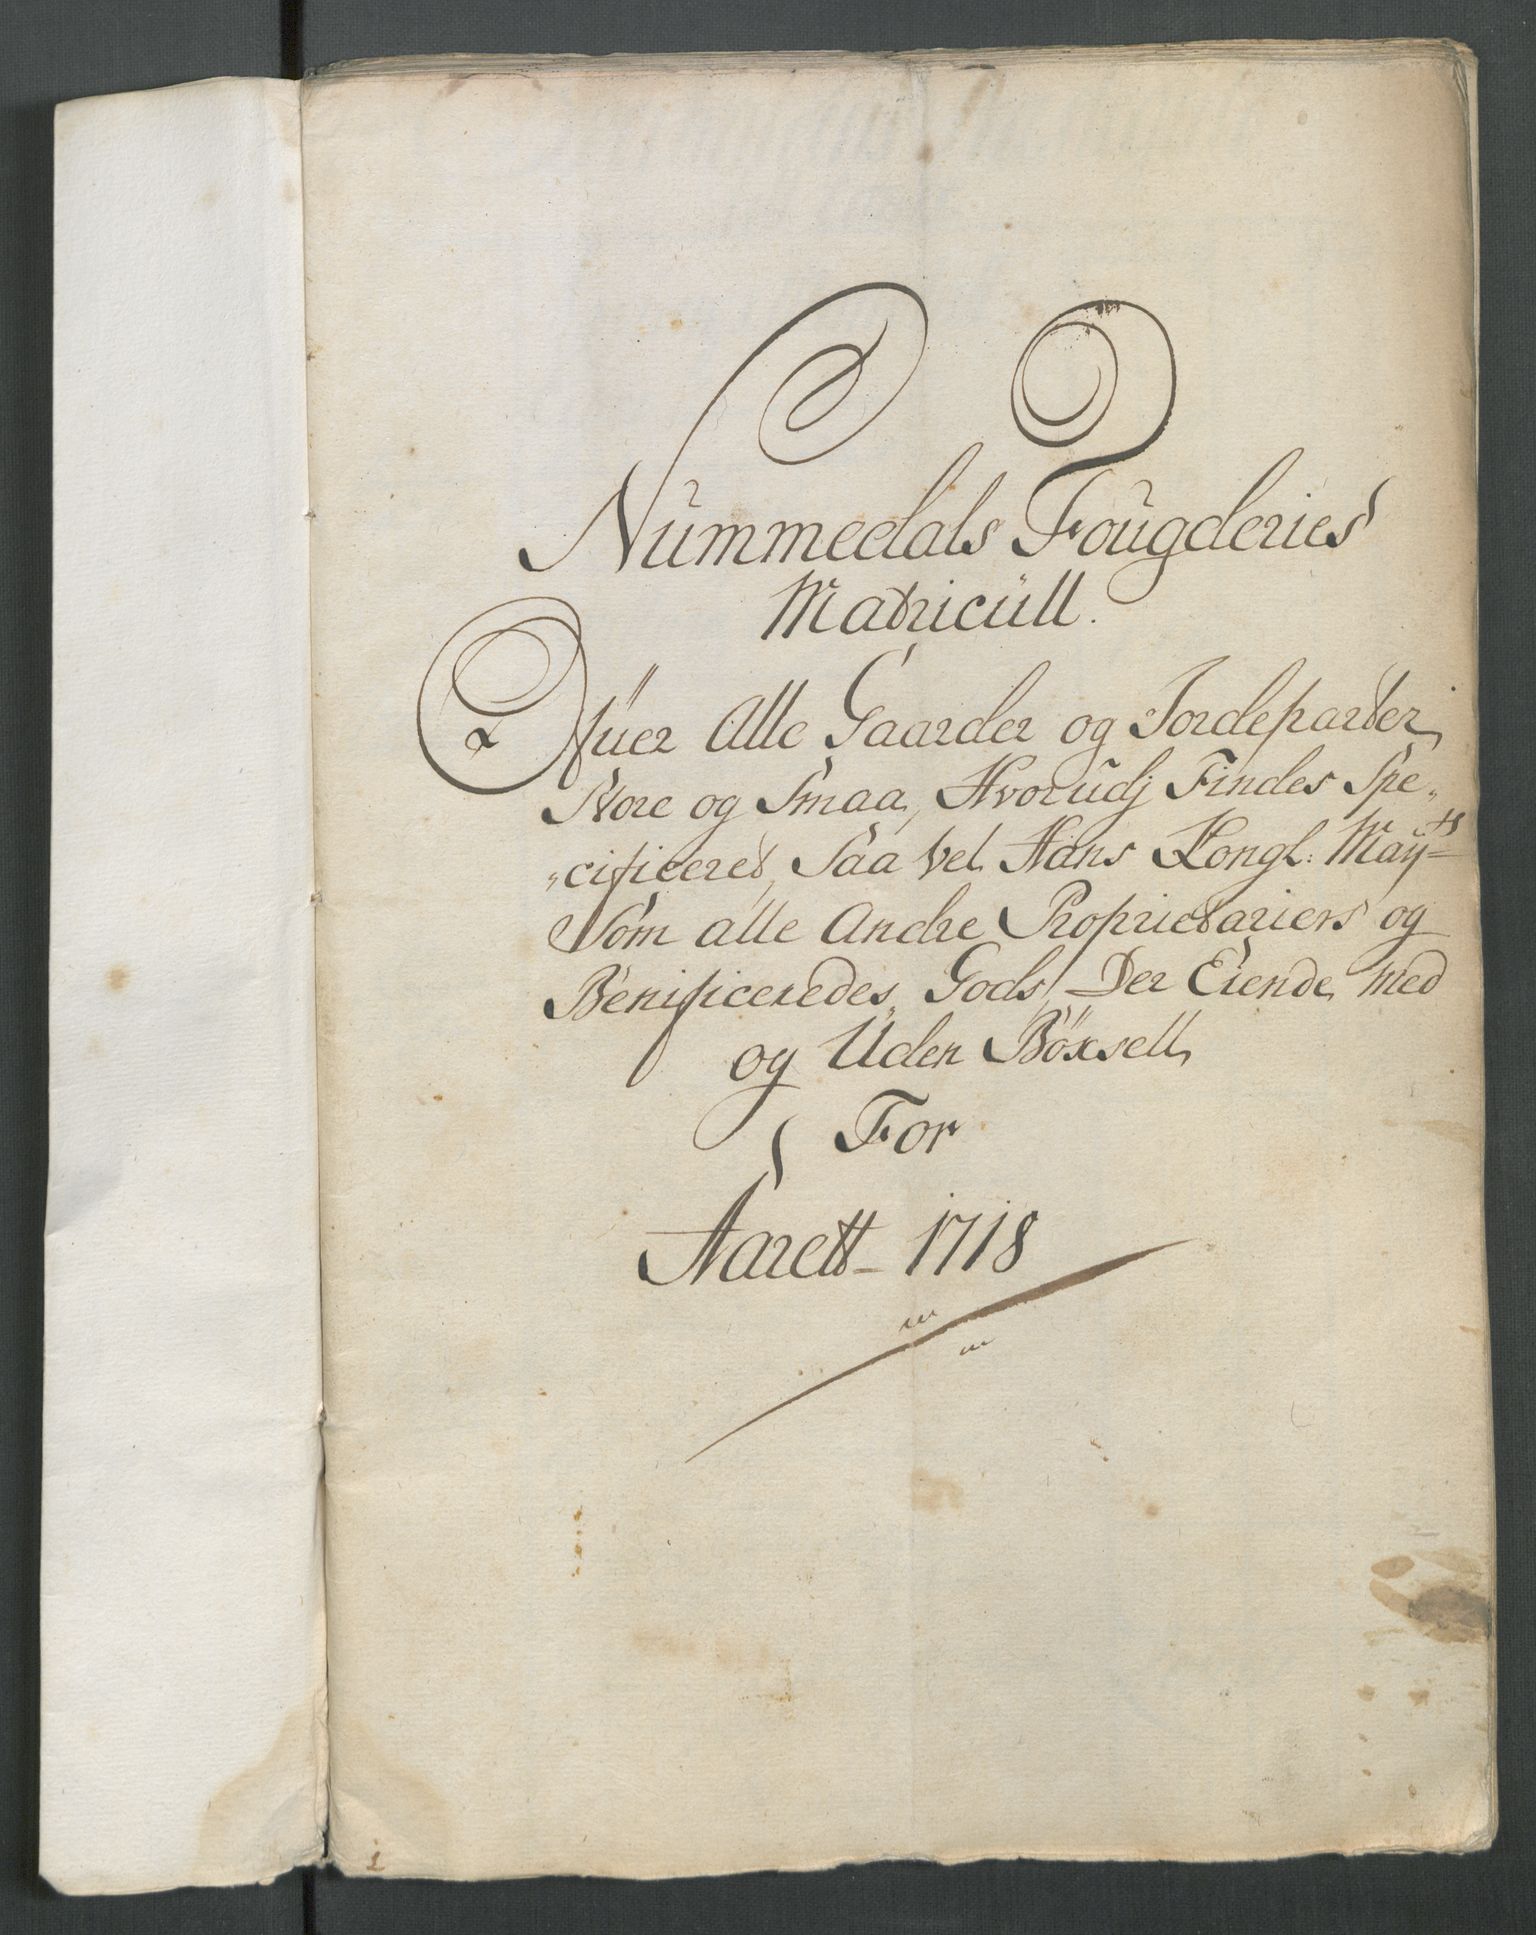 Nummedals Fougderies
Matricull.
Ofuer Alle Gaarder og Jordeparter
Store og Smaa, Hvorudj Findes Spe„
„cificeret, Saa Vel Hans Kongl: May^ts
Som alle Andre Proprietariers og
Benificeredes Gods, Der Eiende, Med
og Uden Böxsell,
For
Aarett 1718
1